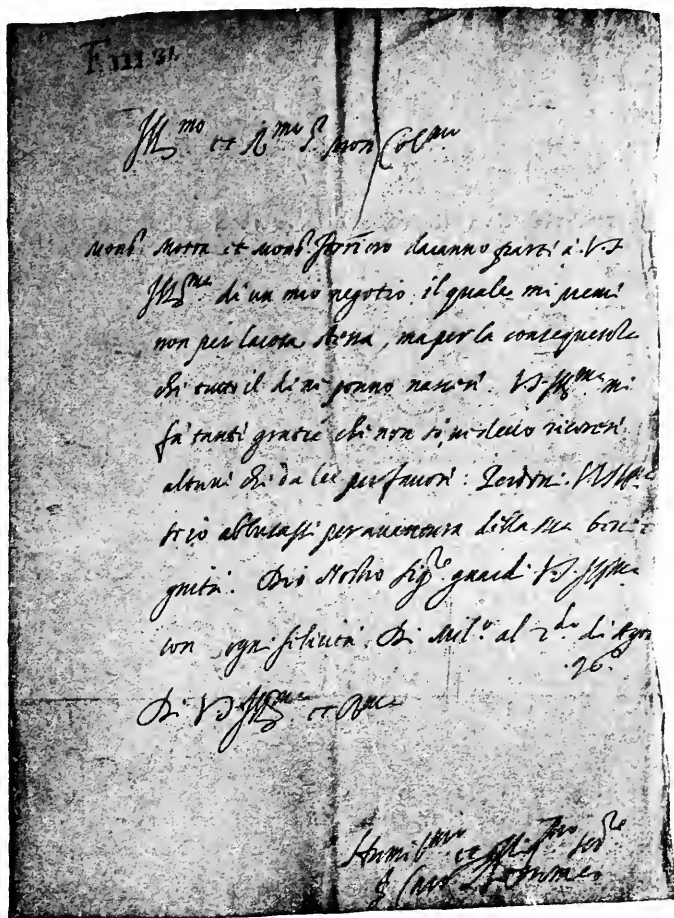 F III 31
Ill.mo et R.mo S.r mon Col.mo
Mons.r Motta et Mons.r daranno parte à V S
Ill.ma di un mio negotio il quale mi preme
non per la cosa stessa, ma per la consequenze
che tutto il dì ne ponno nascere. V.S. Ill.ma mi
fà tante gratie che non sò, ne devo ricorere
altrui che da lei per favori: V S Ill.ma
se io abusassi per aventura della sua beni=
gnità. Dio Nostro Sig.re guardi V.S. Ill.ma
con ogni felicità. Di Mil.o al 2.do di Agos
.96.
Di V S Ill.ma et R.ma
Humil.mo et ser.re